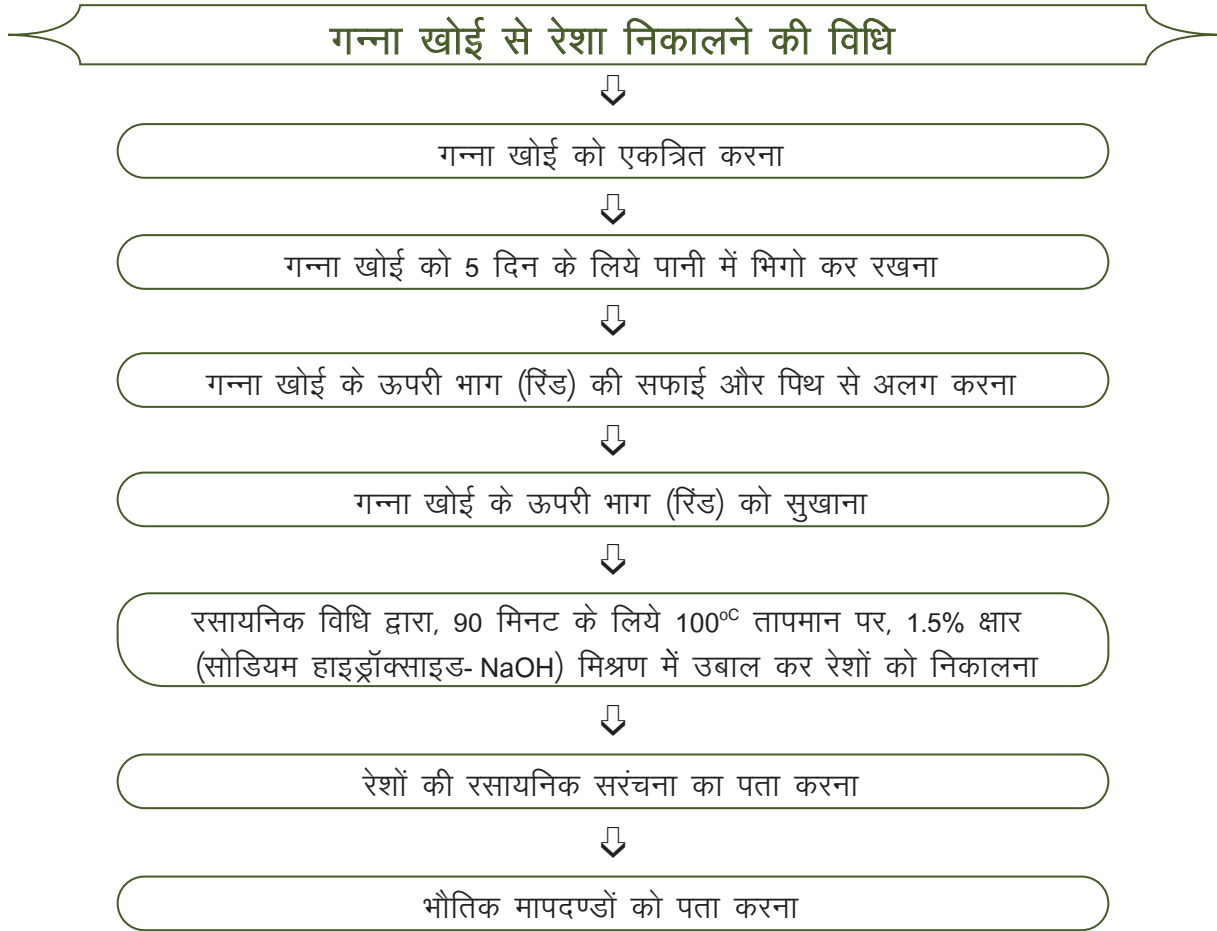 गन्ना खोई से रेशा निकालने की विधि
गन्ना खोई को एकत्रित करना
गन्ना खोई को 5 दिन के लिये पानी में भिगो कर रखना
गन्ना खोई के ऊपरी भाग (रिंड) की सफाई और पिथ से अलग करना
गन्ना खोई के ऊपरी भाग (रिंड) को सुखाना
रसायनिक विधि द्वारा, 90 मिनट के लिये 100ºC तापमान पर, 1.5% क्षार
(सोडियम हाइड्रॉक्साइड- NaOH) मिश्रण में उबाल कर रेशों को निकालना
रेशों की रसायनिक सरंचना का पता करना
भौतिक मापदण्डों को पता करना